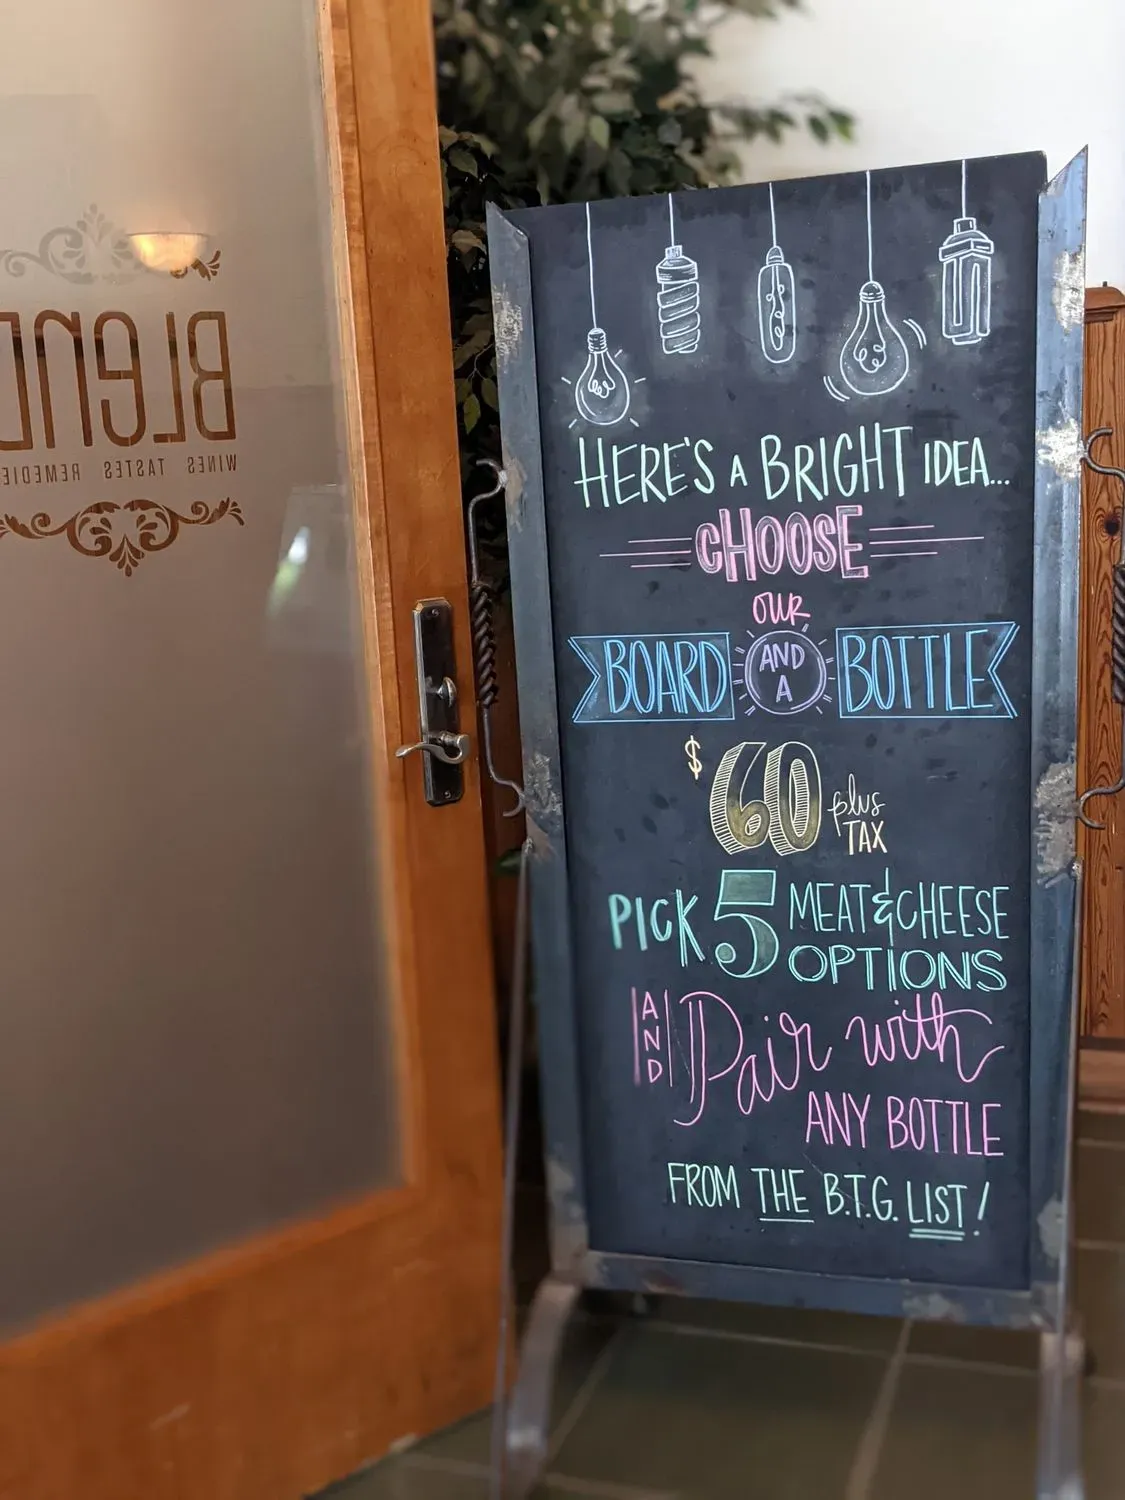 BLEND
WINES TASTES REMEDIE
HERE'S A BRIGHT IDEA...
CHOOSE
OUR
BOARD AND A BOTTLE
$60 plus TAX
PICK 5 MEAT & CHEESE OPTIONS
AND Pair with
ANY BOTTLE
FROM THE B.T.G. LIST!